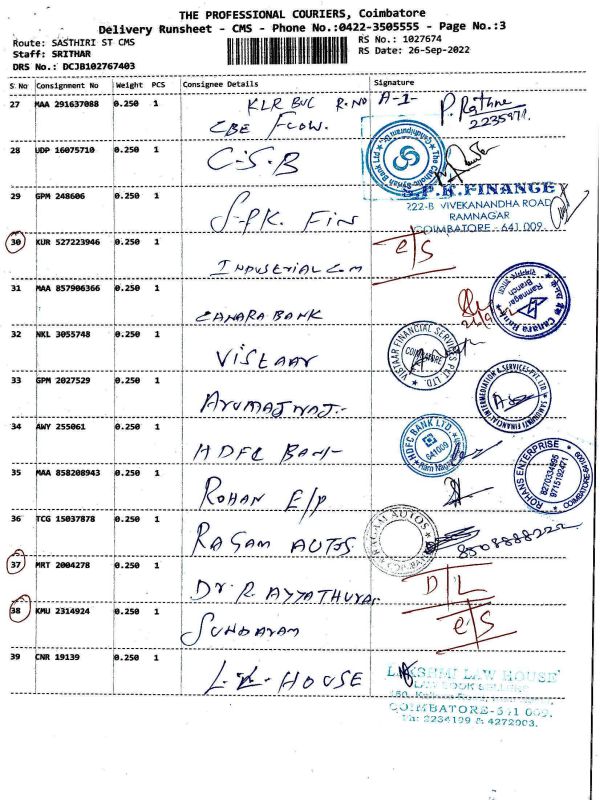 THE PROFESSIONAL COURIERS, Coimbatore
Delivery Runsheet - CMS - Phone No.:0422-3505555 - Page No.:3
Route: SASTHIRI ST CMS
Staff: SRITHAR
DRS No.: DCJB102767403
RS No.: 1027674
RS Date: 26-Sep-2022
S No Consignment No Weight PCS Consignee Details Signature
27 MAA 291637088 0.250 1 KLR BUC R.NO A-1-
CBE Flow.
P. Rathne
28 UDP 16075710 0.250 1 C.S.B
The Catholic Syrian Bank
29 GPM 248606 0.250 1 S.P.K. FIN
S.P.K.FINANCE
222-B VIVEKANANDHA ROAD
RAMNAGAR
COIMBATORE - 641 009
30 KUR 527223946 0.250 1 INDUSTRIAL COM e/S
31 MAA 857906366 0.250 1 CANARA BANK
Canara Bank
Ramnagar
Branch
32 NKL 3055748 0.250 1 VISTAAR
VISTAAR FINANCIAL SERVICES PVT. LTD.
COIMBATORE
33 GPM 2027529 0.250 1
SAMUNNATI FINANCIAL INTERMEDIATION & SERVICES PVT LTD.
34 AWY 255061 0.250 1 HDFC BANK
HDFC BANK LTD.
641009
Ram Nagar
35 MAA 858208943 0.250 1 ROHAN E/P
ROHANS ENTERPRISE
8270334695
9715192471
COIMBATORE-641009
36 TCG 15037878 0.250 1 RAGAM AUTOS
RAGAM AUTOS
8508888222
37 MRT 2004278 0.250 1 Dr. R. AYYATHURAI D/L
38 KMU 2314924 0.250 1 SUNDARAM e/S
39 CNR 19139 0.250 1 L.L. HOUSE
LAKSHMI LAW HOUSE
LAW BOOK SELLERS
COIMBATORE-641 009.
Ph: 2234199 & 4272003.